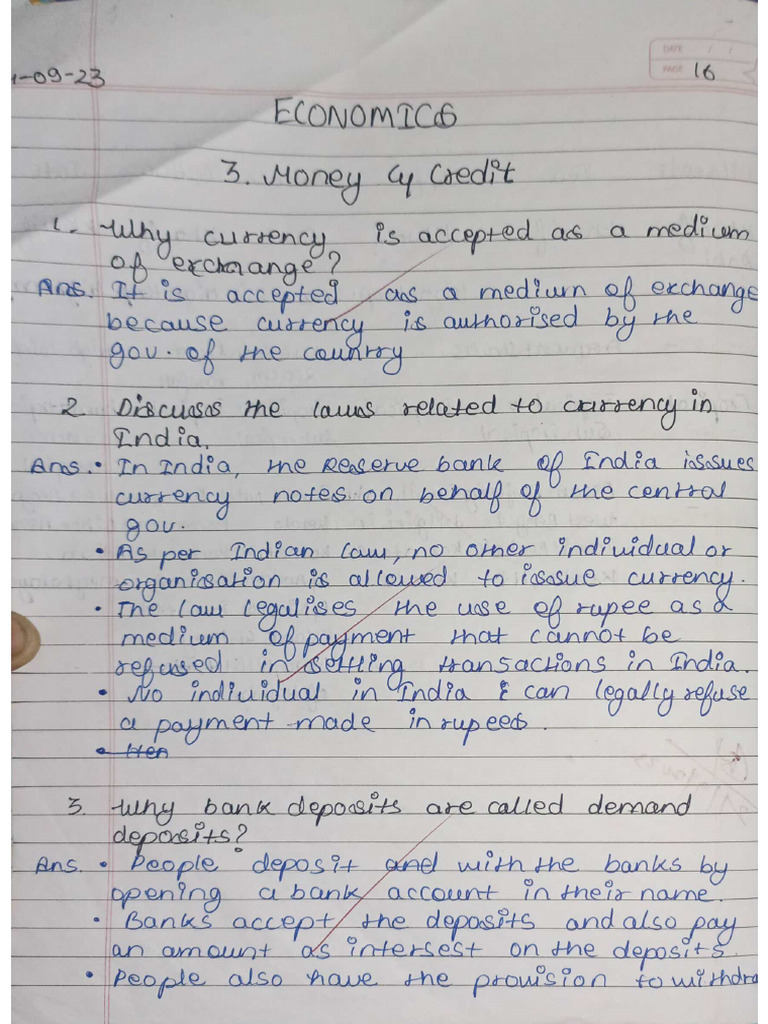 DATE / /
PAGE 16
-09-23
ECONOMICS
3. Money & Credit
1. Why currency is accepted as a medium
of exchange?
Ans. It is accepted as a medium of exchange
because currency is authorised by the
gov. of the country
2. Discuss the laws related to currency in
India.
Ans. • In India, the Reserve bank of India issues
currency notes on behalf of the central
gov.
• As per Indian law, no other individual or
organisation is allowed to issue currency.
• The law legalises the use of rupee as a
medium of payment that cannot be
refused in settling transactions in India.
• No individual in India can legally refuse
a payment made in rupees.
• Hen
3. Why bank deposits are called demand
deposits?
Ans. • People deposit and with the banks by
opening a bank account in their name.
• Banks accept the deposits and also pay
an amount as intersest on the deposits.
• People also have the provision to withdra